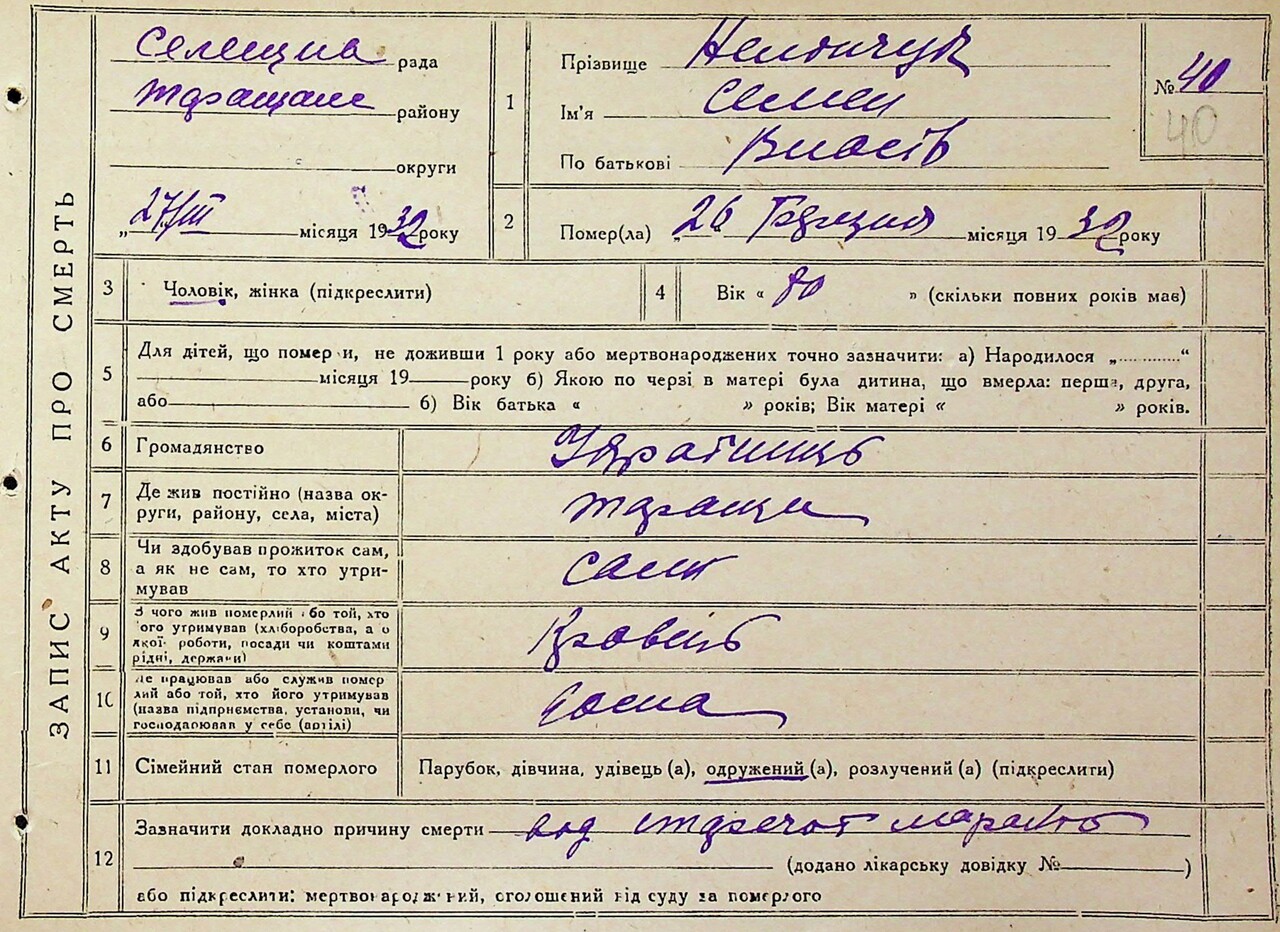 ЗАПИС АКТУ ПРО СМЕРТЬ
Селещна рада
району
округи
„27/III місяця 1932 року
1
Прізвище
Ім'я Семен
По батькові Власів
№ 40
40
2
Помер(ла) „26 місяця 1932 року
3 Чоловік, жінка (підкреслити)
4 Вік « 80 » (скільки повних років має)
5
Для дітей, що померли, не доживши 1 року або мертвонароджених точно зазначити: а) Народилося „............“
місяця 19 року б) Якою по черзі в матері була дитина, що вмерла: перша, друга,
або б) Вік батька « » років; Вік матері « » років.
6 Громадянство Українць
7
Де жив постійно (назва ок-
руги, району, села, міста)
8
Чи здобував прожиток сам,
а як не сам, то хто утри-
мував
сам
9
З чого жив померлий або той, хто
його утримував (хліборобства, а о
якої роботи, посади чи коштами
рідні, держави)
Кровець
10
Де працював або служив помер
лий або той, хто його утримував
(назва підприємства, установи, чи
господарював у себе (вдома)
11 Сімейний стан померлого Парубок, дівчина, удівець (а), одружений (а), розлучений (а) (підкреслити)
12
Зазначити докладно причину смерти од
(додано лікарську довідку № )
або підкреслити: мертвонароджений, оголошений від суду за померлого